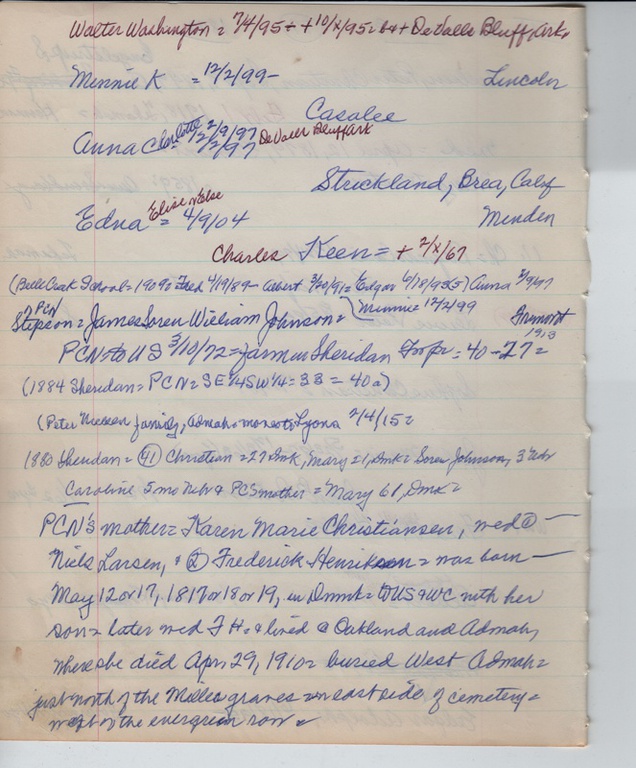 Walter Washington = 7/4/95 ÷ + 10/x/95 = b4 + DeValls Bluff, Ark.
Minnie K = 12/2/99 - Lincoln
Casalee
Anna Charlotte 12/9/97 DeValls Bluff Ark
Strickland, Brea, Calif
Edna Elise Else = 4/9/04 Minden
Charles Keen = + 2/x/67
(Bell Creek School = 1909 = Fred 4/19/89 - Albert 3/20/91 = Edgar 6/18/93(5) Anna 2/9/97
Minnie 12/2/99
PCN Fremont
Stepson = James Soren William Johnson = 1913
PCN to US 3/10/72 = farm in Sheridan = 40-27 =
(1884 Sheridan = PCN = SE 1/4 SW 1/4 = 33 = 40a)
(Peter Nielsen family, Admah = moves to Lyons 2/4/15 =
1880 Sheridan = (41) Christian = 27 Dmk, Mary 21, Dmk = Soren Johnson, 3 Nebr
Caroline 5 mo Nebr & PCS mother = Mary 61, Dmk =
PCN's mother = Karen Marie Christiansen, med ① —
Niels Larsen, & ② Frederick Henriksen = was born —
May 12 or 17, 1817 or 18 or 19, in Dnmk = to US & WC with her
son = later med F H = & lived @ Oakland and Admah,
where she died Apr. 29, 1910 = buried West Admah =
just north of the Milles graves = on east side of cemetery =
west of the evergreen row =